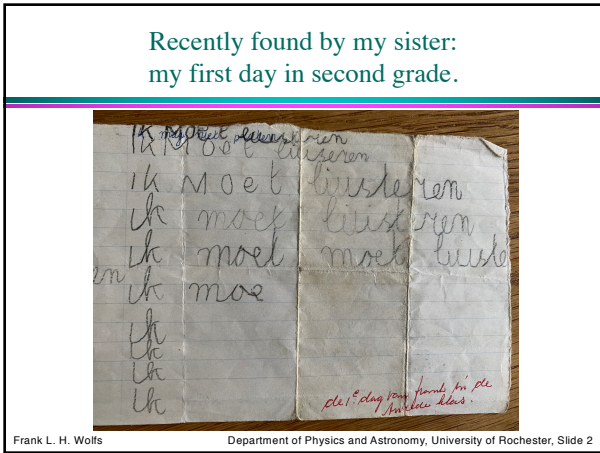 Recently found by my sister:
my first day in second grade.
ik Moet luisteren
ik Moet liuseren
ik Moet liusteren
ik moet liusteren
ik moet moet liuste
en
ik moe
ik
ik
ik
ik
de 1e dag van frank in de
tweede klas.
Frank L. H. Wolfs
Department of Physics and Astronomy, University of Rochester, Slide 2